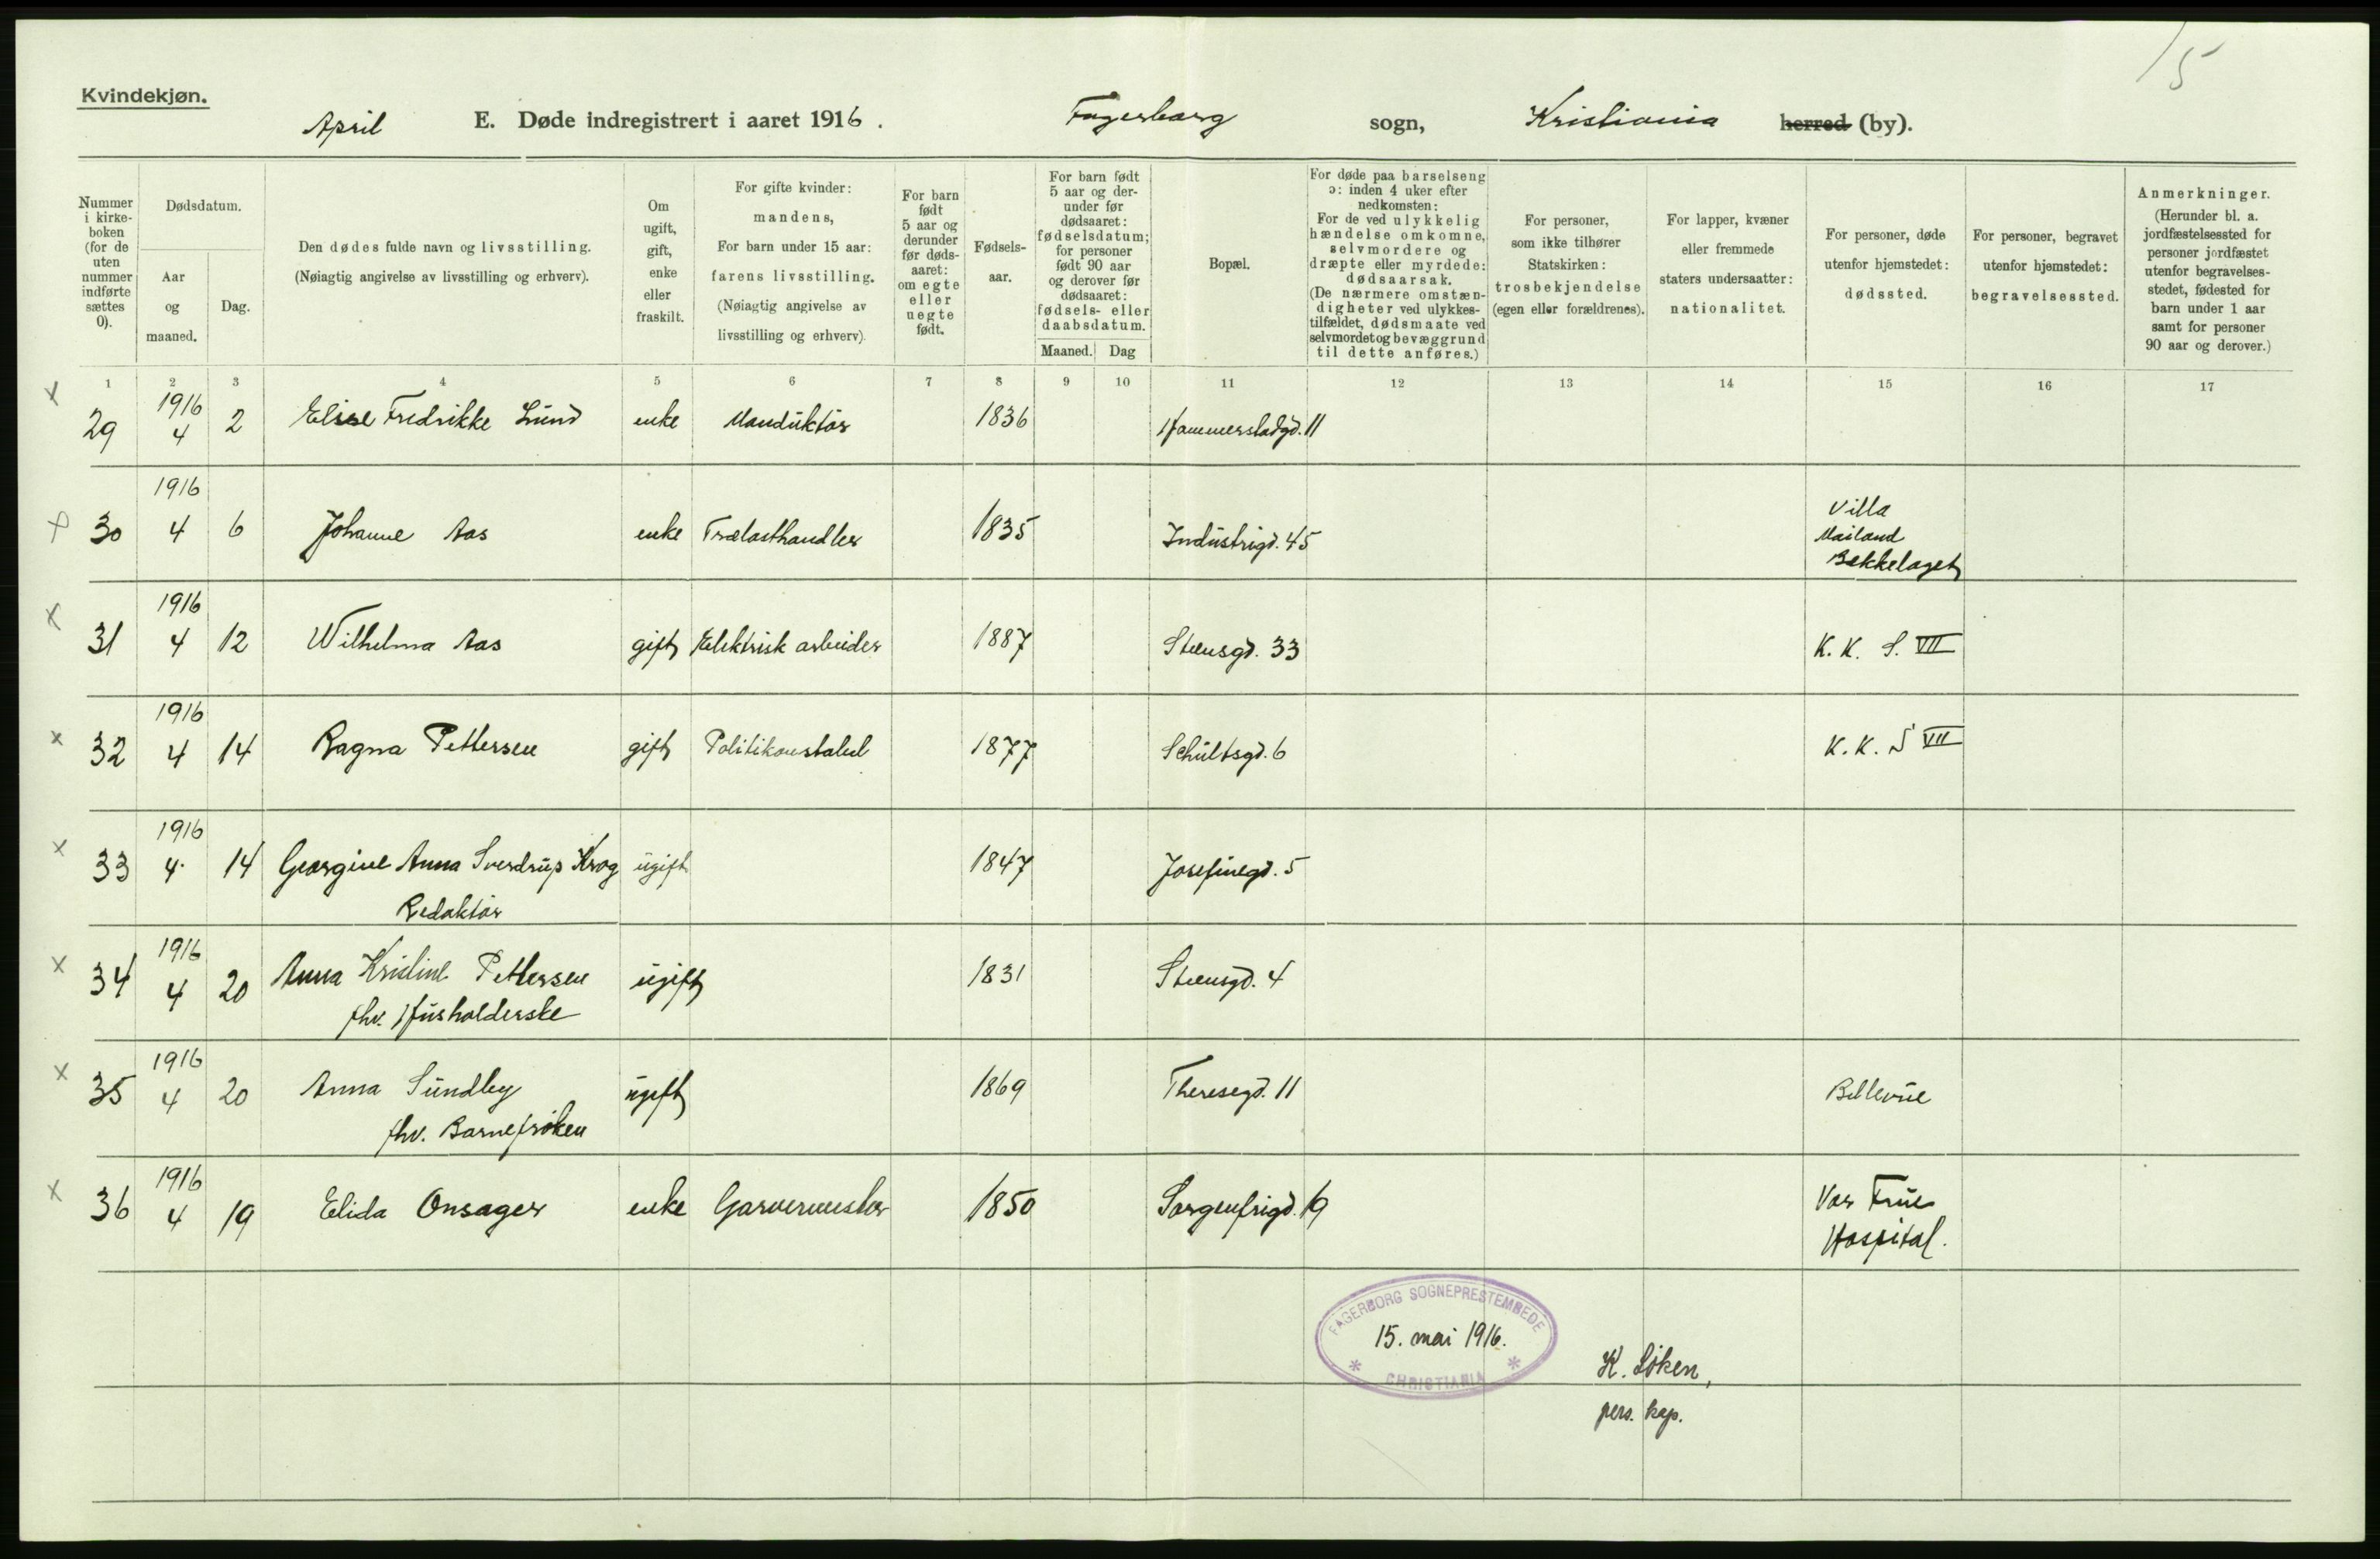 15
Kvindekjøn.
April E. Døde indregistrert i aaret 1916. Fagerborg sogn, Kristiania herred (by).
Nummer i kirke-boken (for de uten nummer indførte sættes 0).
Dødsdatum.
Aar og maaned.
Dag.
Den dødes fulde navn og livsstilling.
(Nøiagtig angivelse av livsstilling og erhverv).
Om ugift, gift, enke eller fraskilt.
For gifte kvinder: mandens,
For barn under 15 aar: farens livsstilling.
(Nøiagtig angivelse av livsstilling og erhverv).
For barn født 5 aar og derunder før døds-aaret: om egte eller uegte født.
Fødsels-aar.
For barn født 5 aar og der-under før dødsaaret: fødselsdatum; for personer født 90 aar og derover før dødsaaret: fødsels- eller daabsdatum.
Maaned. Dag
Bopæl.
For døde paa barselseng ɔ: inden 4 uker efter nedkomsten:
For de ved ulykkelig hændelse omkomne, selvmordere og dræpte eller myrdede: dødsaarsak.
(De nærmere omstæn-digheter ved ulykkes-tilfældet, dødsmaate ved selvmordet og bevæggrund til dette anføres.)
For personer, som ikke tilhører Statskirken: trosbekjendelse (egen eller forældrenes).
For lapper, kvæner eller fremmede staters undersaatter: nationalitet.
For personer, døde utenfor hjemstedet: dødssted.
For personer, begravet utenfor hjemstedet: begravelsessted.
Anmerkninger.
(Herunder bl. a. jordfæstelsessted for personer jordfæstet utenfor begravelses-stedet, fødested for barn under 1 aar samt for personer 90 aar og derover.)
1 2 3 4 5 6 7 8 9 10 11 12 13 14 15 16 17
x 29 1916 4 2 Elise Fredrikke Lund enke Manduktør 1836 Hammerstadgd. 11
x 30 1916 4 6 Johanne Aas enke Trælasthandler 1835 Industrigd. 45 Villa Mailand Bekkelaget
x 31 1916 4 12 Wilhelma Aas gift Elektrisk arbeider 1887 Stensgd. 33 K. K. S. VII
x 32 1916 4 14 Ragna Pettersen gift Politikonstabel 1877 Schultsgd. 6 K. K. S VII
x 33 1916 4 14 Georgine Anna Sverdrup Krog ugift 1847 Josefinegd. 5
Redaktør
x 34 1916 4 20 Anna Kristine Pettersen ugift 1831 Stensgd. 4
fhv. Husholderske
x 35 1916 4 20 Anna Sundby ugift 1869 Theresegd. 11 Bellevue
fhv. Barnefrøken
x 36 1916 4 19 Elida Onsager enke Garvermester 1850 Sorgenfrigd. 19 Vor Frue Hospital.
FAGERBORG SOGNEPRESTEMBEDE
15. mai 1916.
* CHRISTIANIA *
K. Løken,
pers. kap.